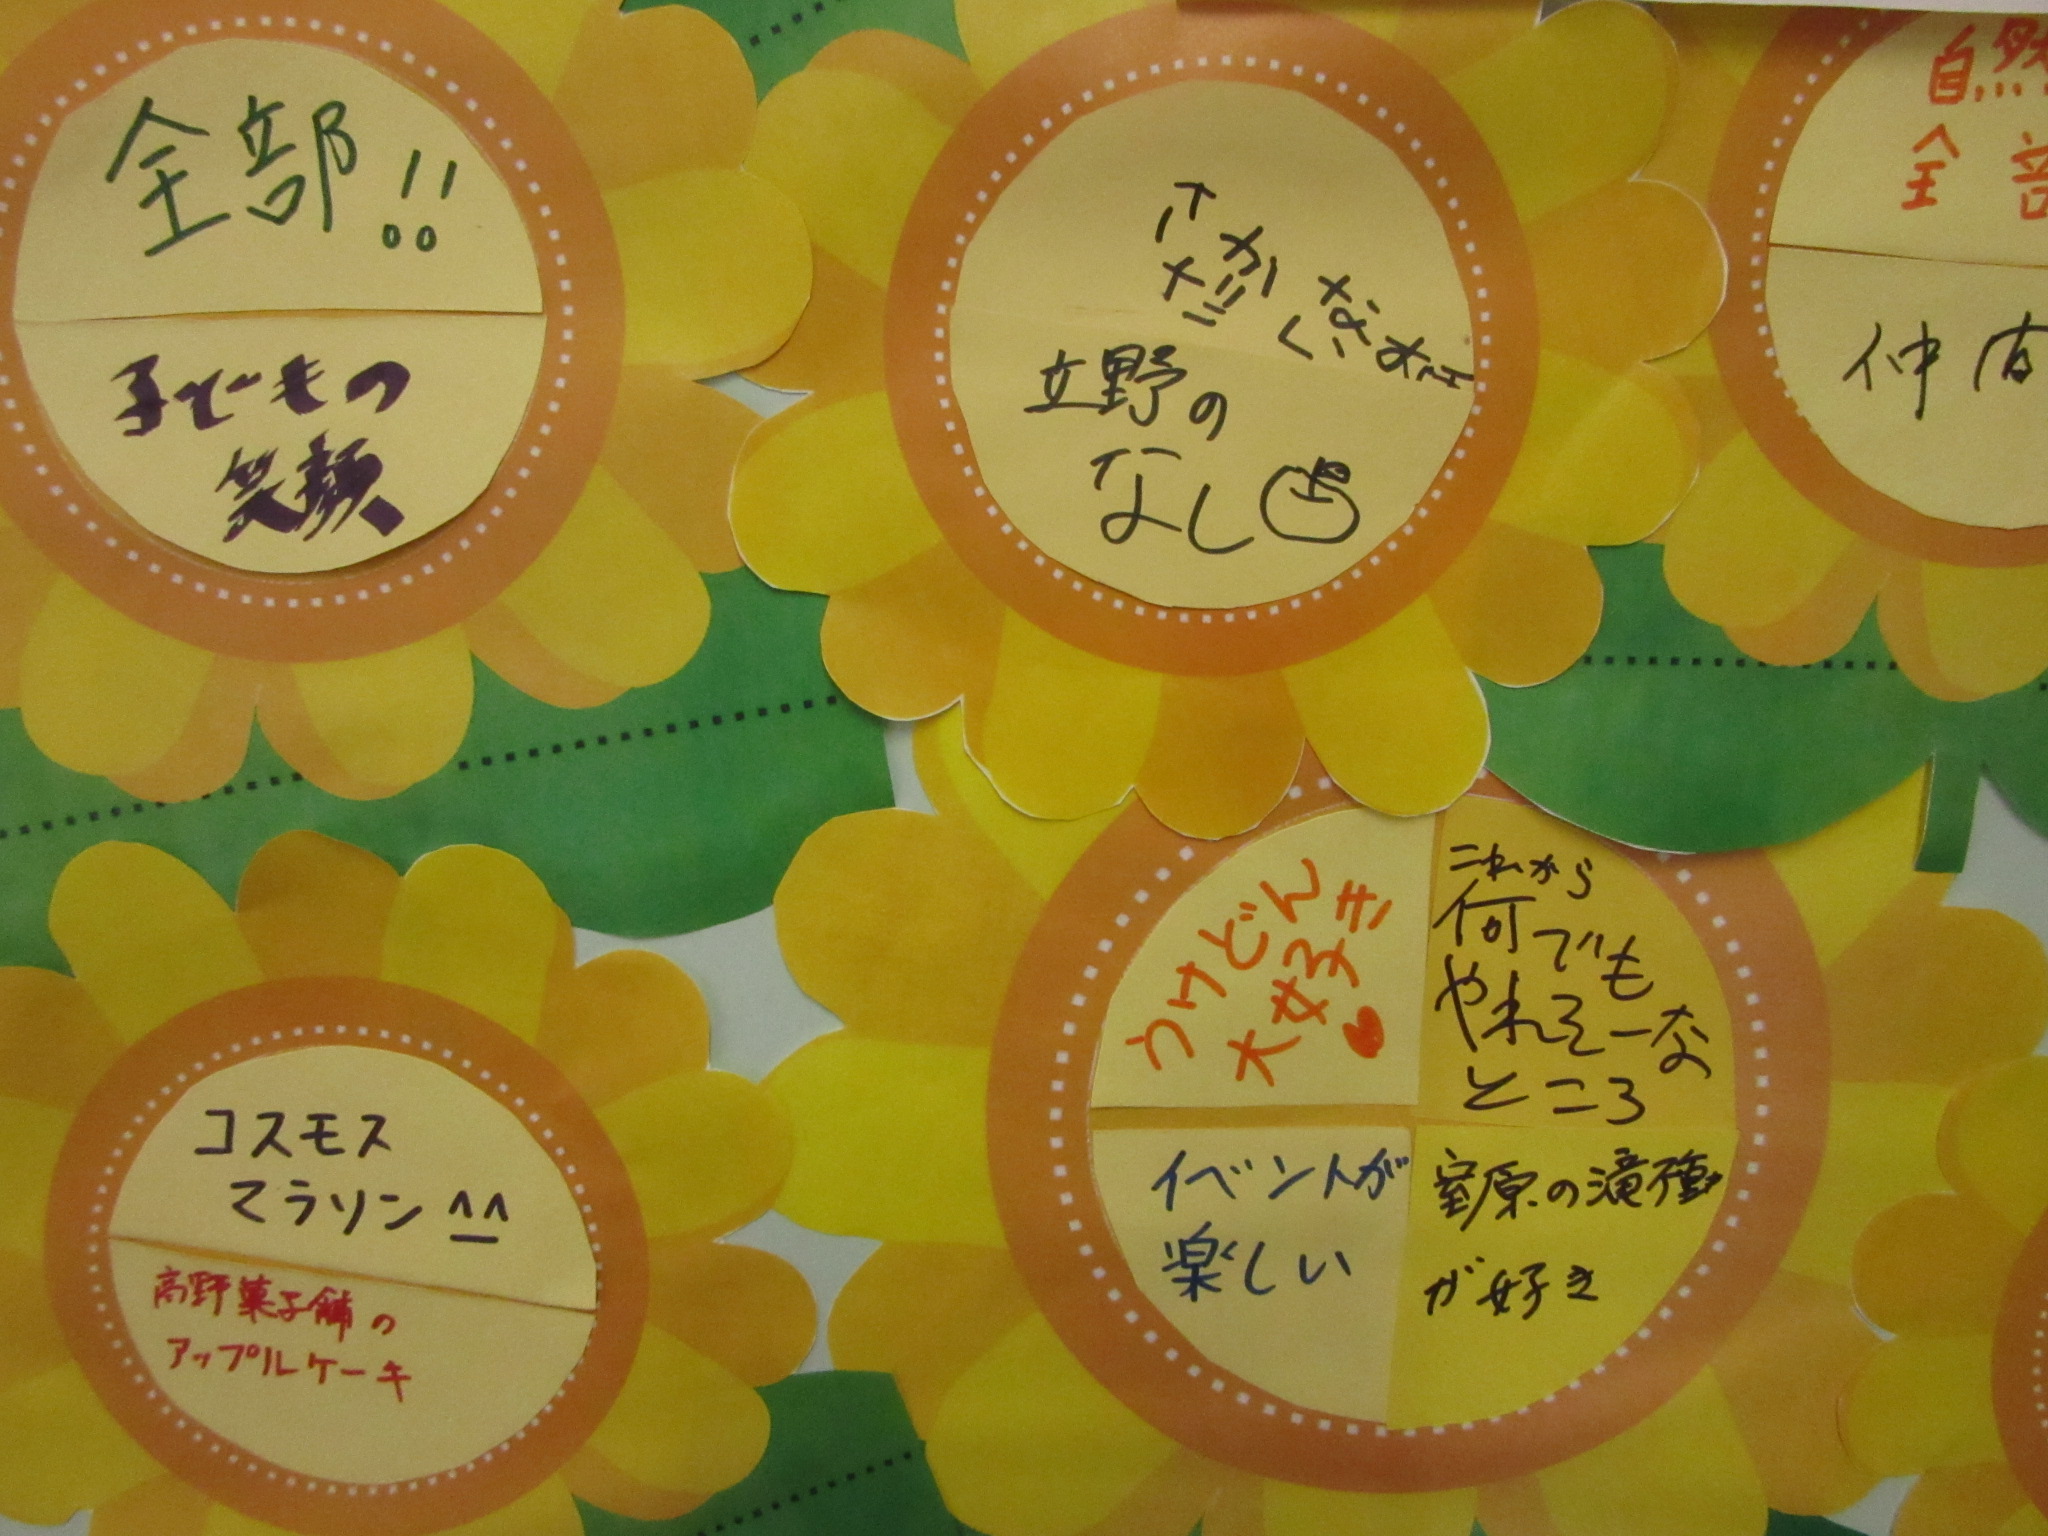 全部!!
子どもの
笑顔
立野の
なし
自然
全部
仲間
うけどん
大好き
これから
何でも
やれそーな
ところ
イベントが
楽しい
室原の滝桜
が好き
コスモス
マラソン^^
高野菓子舗の
アップルケーキ